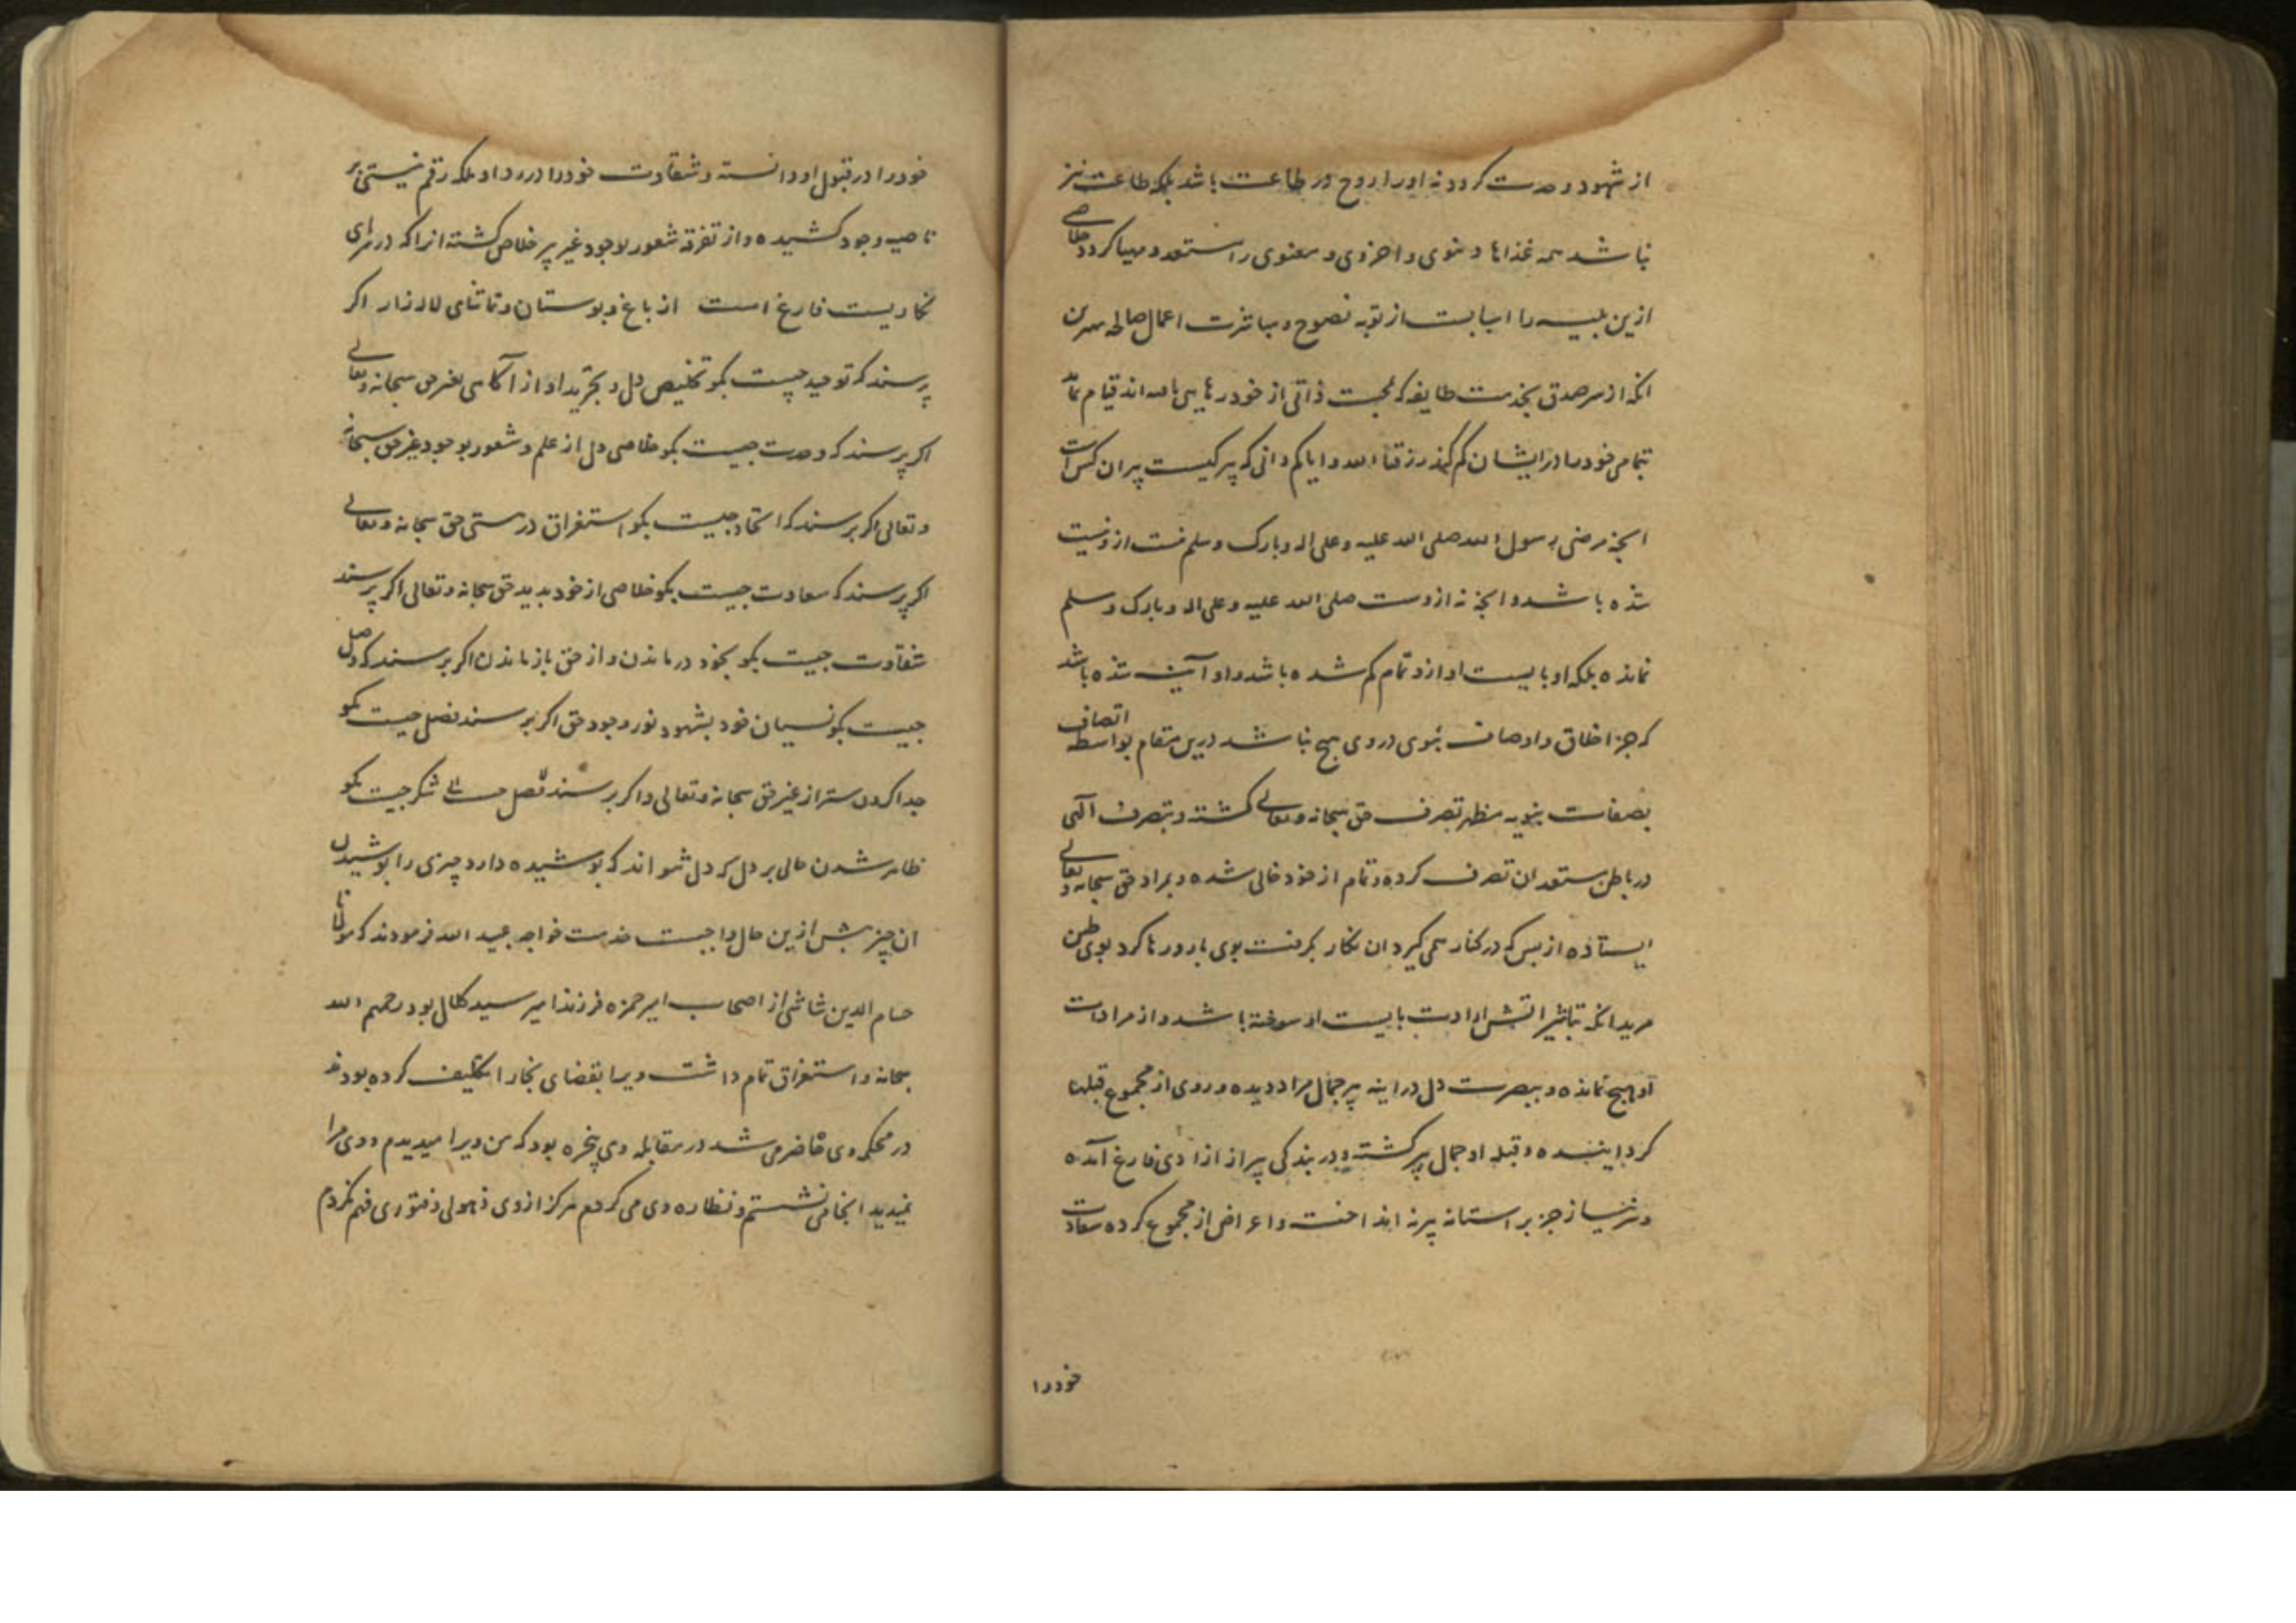 از شهود وحدت کردد نه اورا روح در طاعت باشد بلکه طاعت نیز
نباشد همه غذاها دنیوی و اخروی و معنوی را مستعد و مهیا کردد خلاصی
ازین بلیه را اسبابست از توبه نصوح و مباشرت اعمال صالحه بهترین
انکه از سر صدق بخدمت طایفه که بمحبت ذاتی از خود رهایی یافته اند قیام نماید
بتمامی خود را در ایشان کم کند رزقنا الله و ایاکم دانی که پیر کیست پیر ان کس است
انچه مرضی رسول الله صلی الله علیه و علی اله و بارک و سلم نیست ازو نیست
شده باشد و انچه نه ازوست صلی الله علیه و علی اله و بارک و سلم
نمانده بلکه او با بایست او ازو تمام کم شده باشد و او آینه شده باشد
که جز اخلاق و اوصاف نبوی در وی هیچ نباشد درین مقام بواسطه اتصاف
بصفات نبویه مظهر تصرف حق سبحانه و تعالی کشته و بتصرف الهی
در باطن مستعدان تصرف کرده و تمام از خود خالی شده و بمراد حق سبحانه و تعالی
ایستاده از بس که در کنار همی کیرد ان نکار بکرفت بوی یار و رها کرد بوی طین
مرید انکه بتاثیر اتش ارادت بایست او سوخته باشد و از مرادات
او هیچ نمانده و ببصرت دل در اینه پیر جمال مراد دیده و روی از مجموع قبلها
کردانیده و قبله او جمال پیر کشته و در بندکی پیر از ازادی فارغ آمده
و سر نیاز جز بر استانه پیر نه انداخت و اعراض از مجموع کرده سعادت
خود را
خود را در قبول او دانسته و شقاوت خود را در رد او بلکه رقم نیستی بر
ناصیه وجود کشیده و از تفرقه شعور بوجود غیر پیر خلاص کشته انرا که در سرای
نکاریست فارغ است از باغ و بوستان و تماشای لاله زار اکر
پرسند که توحید چیست بکو تخلیص دل و تجرید او از آکاهی بغیر حق سبحانه و تعالی
اکر پرسند که وحدت چیست بکو خلاصی دل از علم و شعور بوجود غیر حق سبحانه
و تعالی اکر پرسند که اتحاد چیست بکو استغراق در هستی حق سبحانه و تعالی
اکر پرسند که سعادت چیست بکو خلاصی از خود بدید حق سبحانه و تعالی اکر پرسند
شقاوت چیست بکو بخود در ماندن و از حق باز ماندن اکر پرسند که وصل
چیست بکو نسیان خود بشهود نور وجود حق اکر پرسند فصل چیست بکو
جدا کردن سر از غیر حق سبحانه و تعالی و اکر پرسند شکر چیست بکو
ظاهر شدن حالی بر دل که دل نتواند که پوشیده دارد چیزی را پوشیدن
ان چیز پیش ازین حال واجبست خدمت خواجه عبید الله فرمودند که مولانا
حسام الدین شاشی از اصحاب امیر حمزه فرزند امیر سید کلال بود رحمهم الله
سبحانه و استغراق تمام داشت ویرا بقضای بخارا تکلیف کرده بودند
در محکمه وی حاضر می شد در مقابله وی پنجره بود که من ویرا میدیدم و وی مرا
نمیدید انجا می نشستم و نظاره وی می کردم هرکز از وی ذهولی و فتوری فهم نکردم